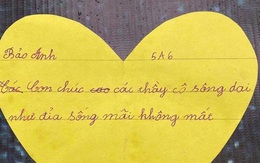 Bảo Anh 5A6
Các Con chúc cao các thầy cô sống dai
như đỉa sống mãi không mất